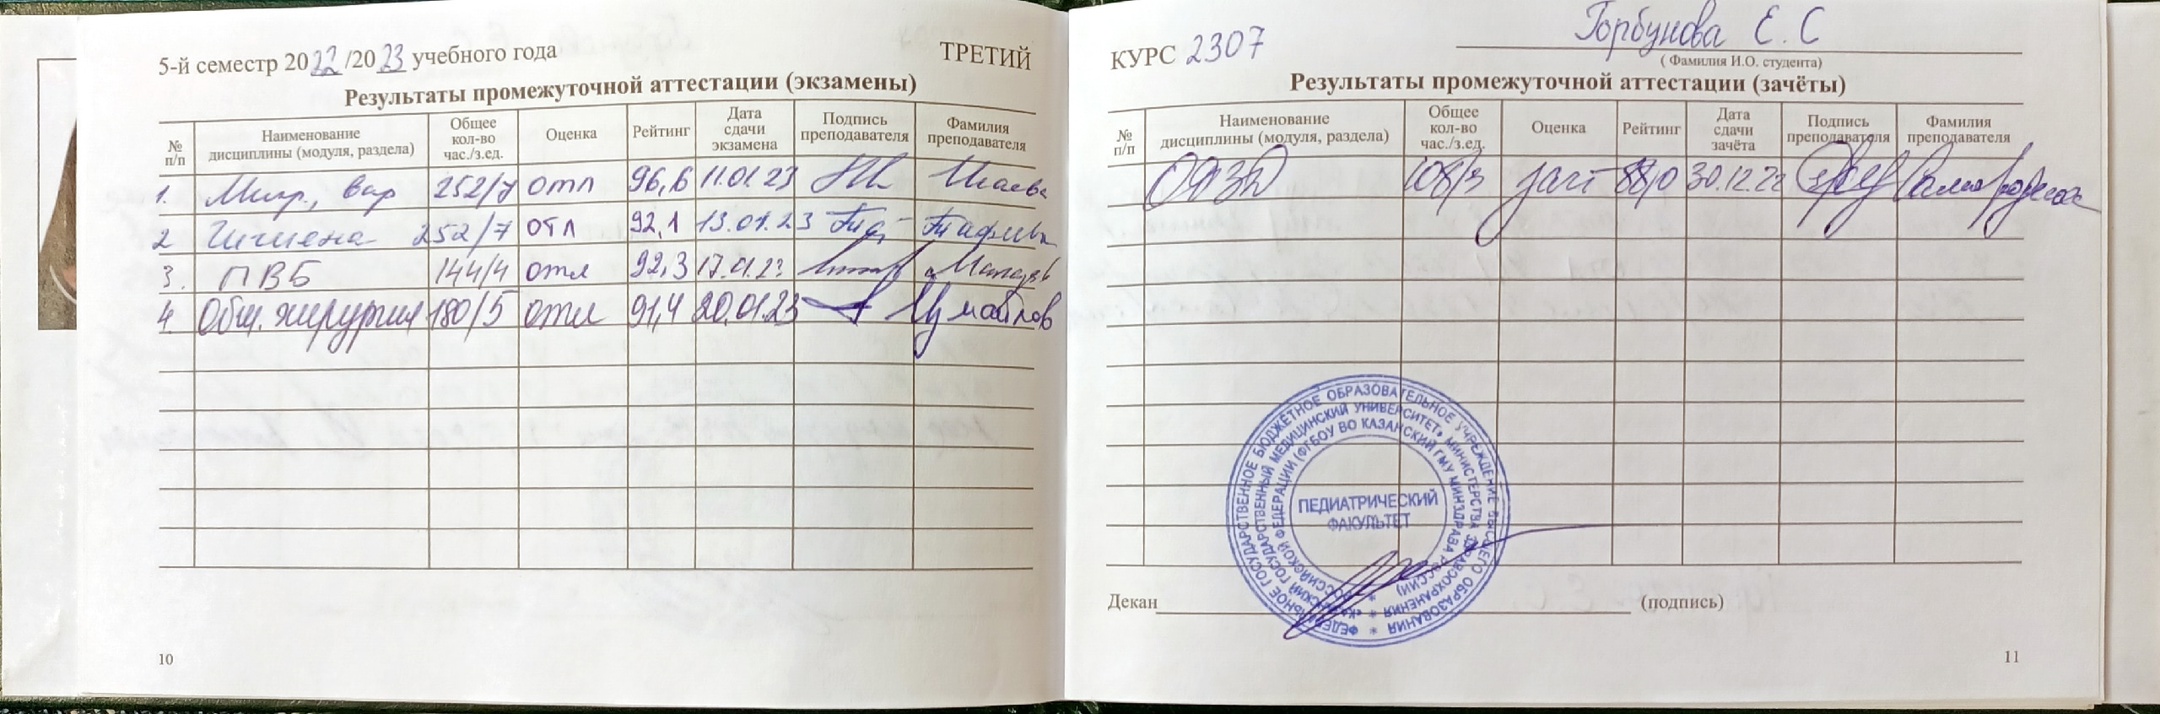 5-й семестр 2022/2023 учебного года
ТРЕТИЙ
Результаты промежуточной аттестации (экзамены)
№ п/п Наименование дисциплины (модуля, раздела) Общее кол-во час./з.ед. Оценка Рейтинг Дата сдачи экзамена Подпись преподавателя Фамилия преподавателя
1. Микр., вир 252/7 отл 96,6 11.01.23 Исаева
2 Гигиена 252/7 отл 92,1 13.01.23
3. ПВБ 144/4 отл 92,3 17.01.23
4. Общ. хирургия 180/5 отл 91,4 20.01.23
10
КУРС 2307
Горбунова Е. С
(Фамилия И.О. студента)
Результаты промежуточной аттестации (зачёты)
№ п/п Наименование дисциплины (модуля, раздела) Общее кол-во час./з.ед. Оценка Рейтинг Дата сдачи зачёта Подпись преподавателя Фамилия преподавателя
ОФЗД 108/3 зачт 88,0 30.12.22
ФЕДЕРАЛЬНОЕ ГОСУДАРСТВЕННОЕ БЮДЖЕТНОЕ ОБРАЗОВАТЕЛЬНОЕ УЧРЕЖДЕНИЕ ВЫСШЕГО ОБРАЗОВАНИЯ
«КАЗАНСКИЙ ГОСУДАРСТВЕННЫЙ МЕДИЦИНСКИЙ УНИВЕРСИТЕТ» МИНИСТЕРСТВА ЗДРАВООХРАНЕНИЯ
РОССИЙСКОЙ ФЕДЕРАЦИИ (ФГБОУ ВО КАЗАНСКИЙ ГМУ МИНЗДРАВА РОССИИ)
ПЕДИАТРИЧЕСКИЙ
ФАКУЛЬТЕТ
Декан (подпись)
11